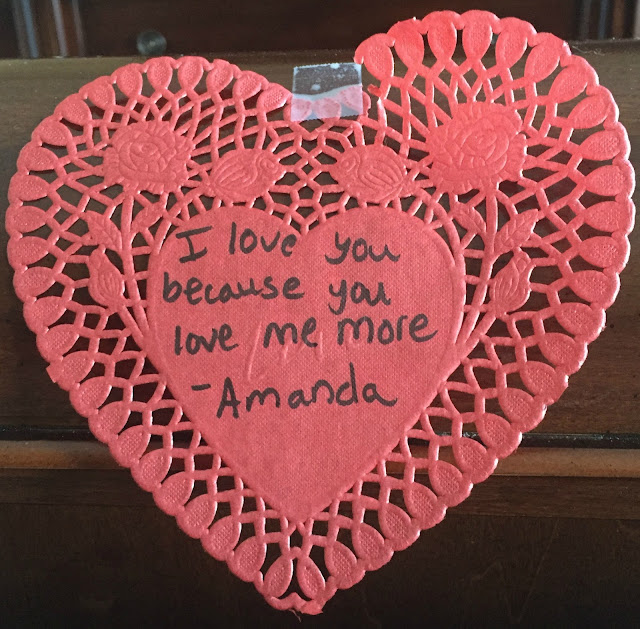 I love you
because you
love me more
-Amanda